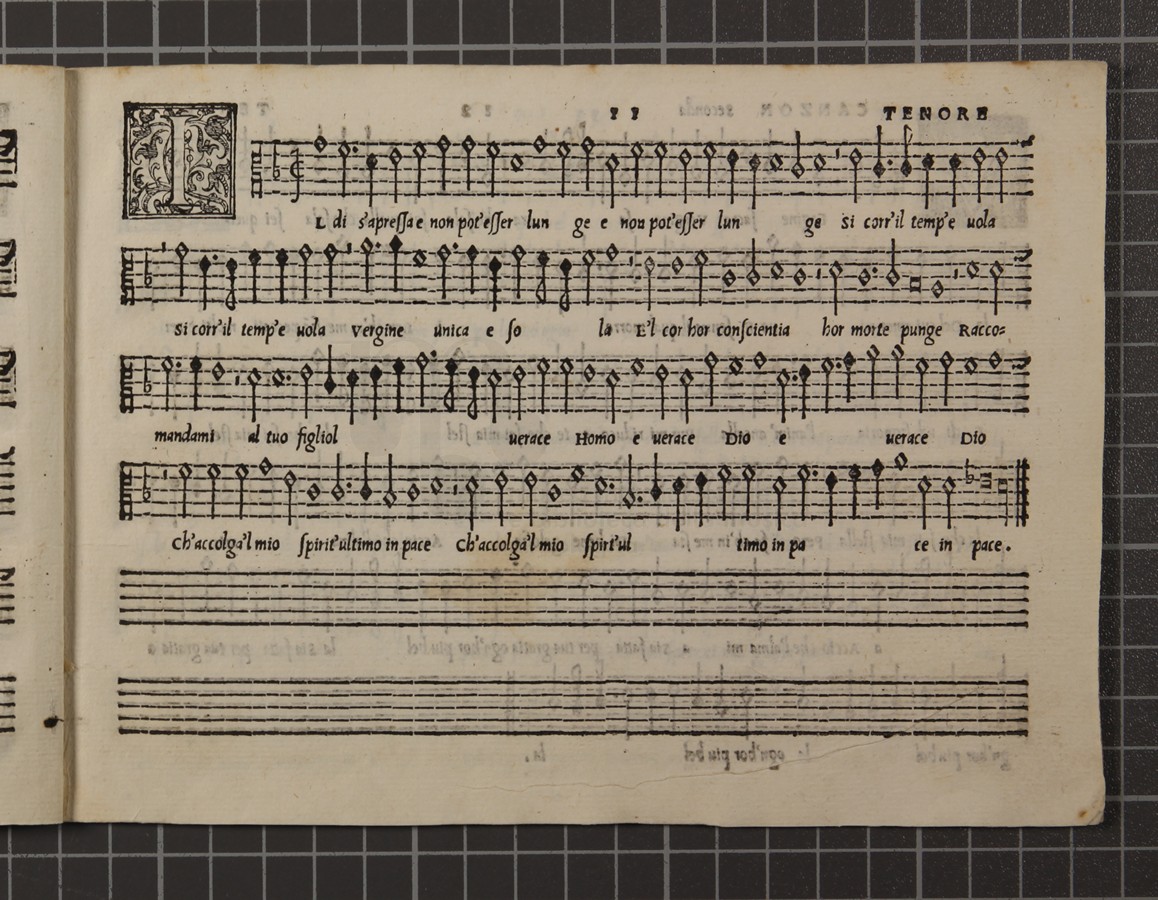 11 TENORE
IL di s'apressa e non pot'esser lun ge e non pot'esser lun ge Si corr'il temp'e uola
Si corr'il temp'e uola Vergine unica e so la E'l cor hor conscientia hor morte punge Racco=
mandami al tuo figliol uerace Homo e uerace Dio e uerace Dio
Ch'accolga'l mio spirit'ultimo in pace Ch'accolga'l mio spirt'ul timo in pa ce in pace.